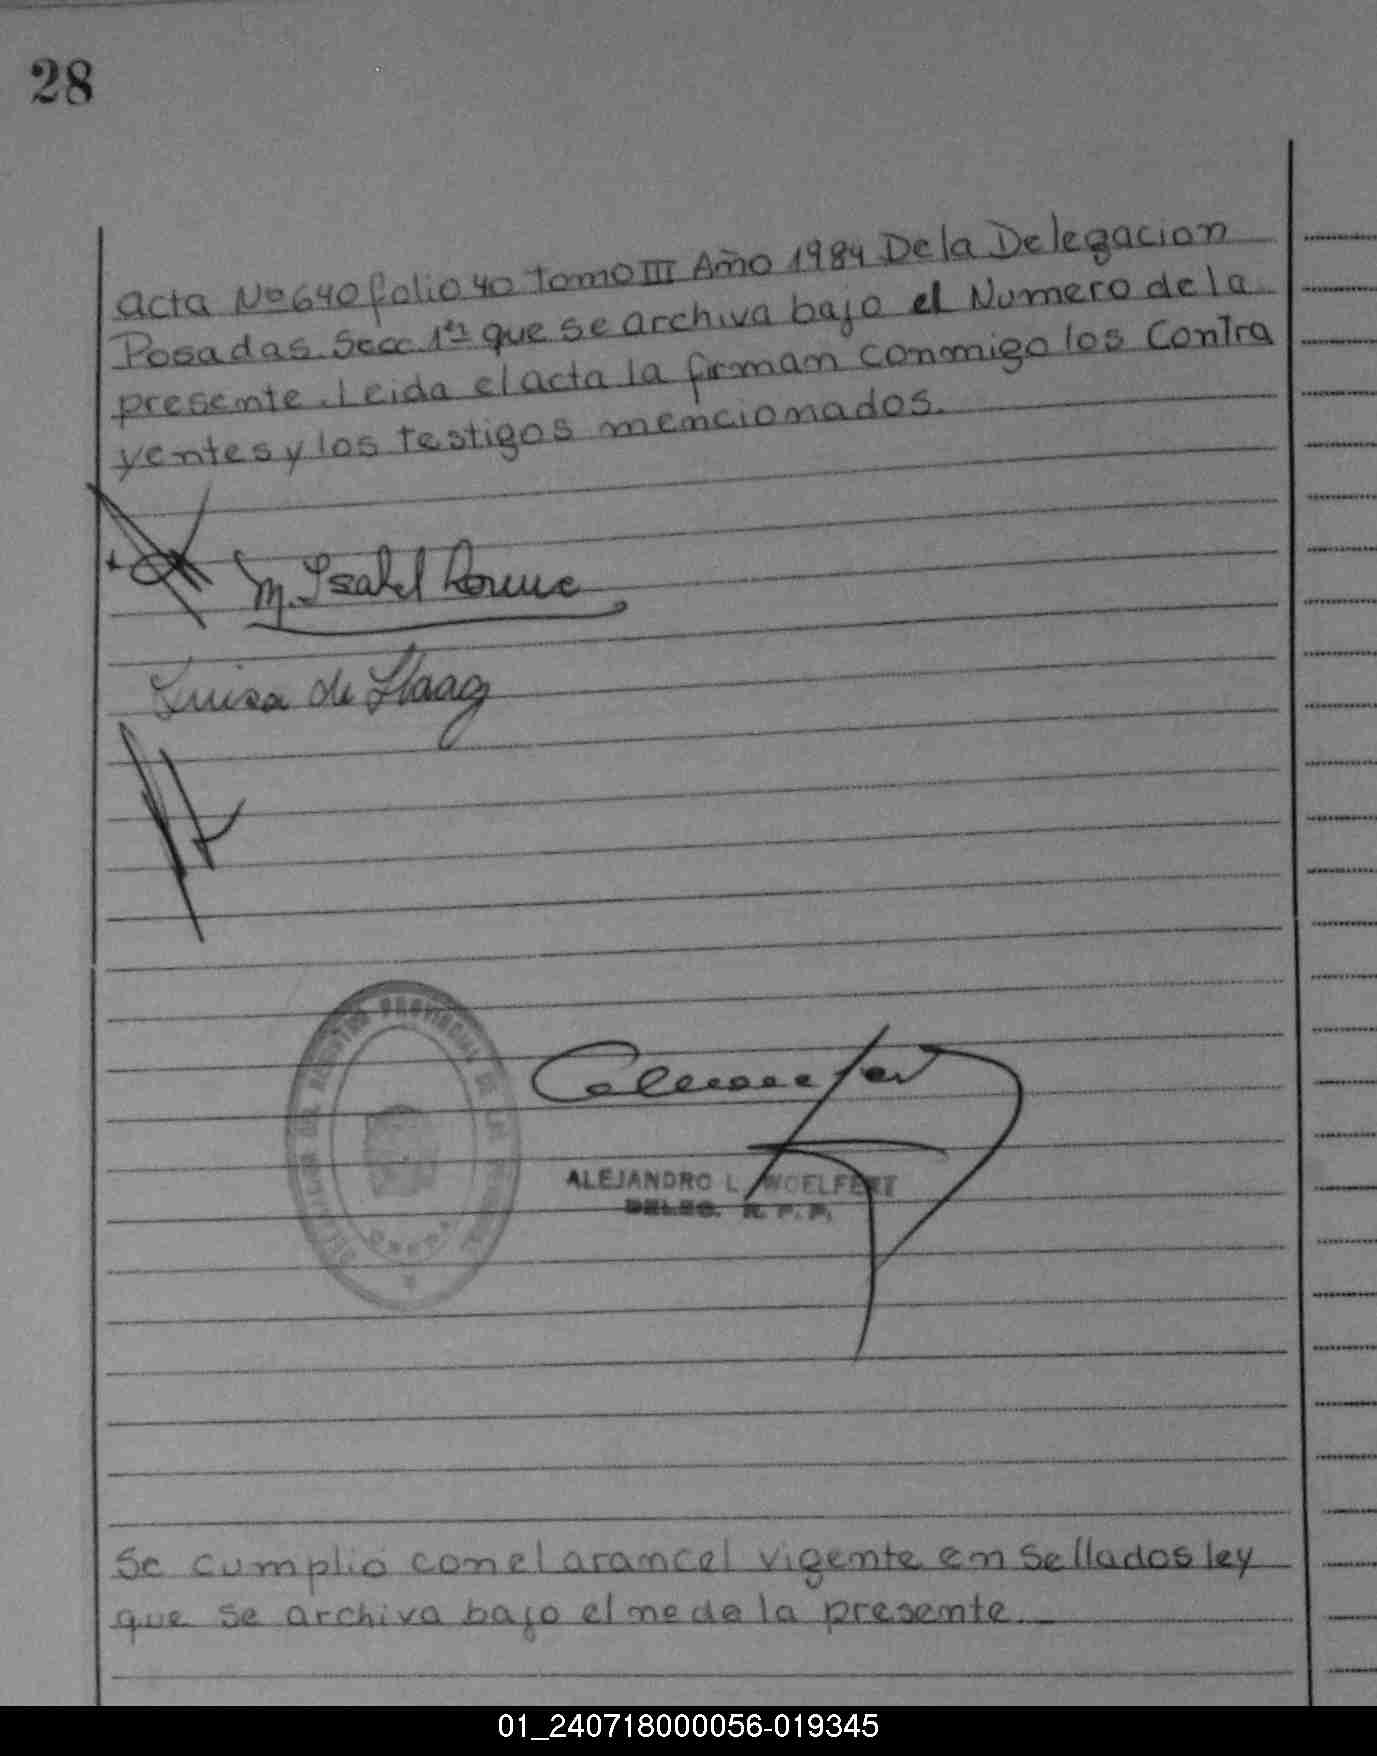 28
acta No 640 folio 40 Tomo III Año 1984 De la Delegacion
Posadas Secc 1ra que se archiva bajo el Numero de la
presente. Leida el acta la firman conmigo los Contra
yentes y los testigos mencionados.
M. Isabel
Luisa de Haag
PROVINCIAL DE LA
ALEJANDRO L. WOELFERT
DELEG. R. P. P.
Se cumplio con el arancel vigente en Sellados ley
que se archiva bajo el no de la presente.
01_240718000056-019345